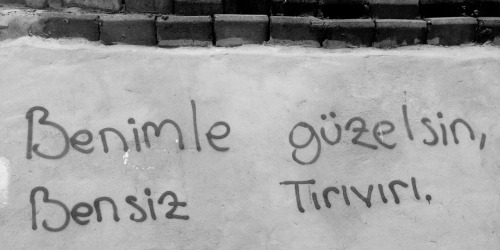 Benimle güzelsin,
Bensiz Tırıvırı.